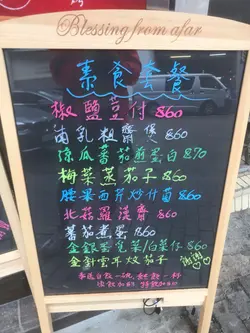 Blessing from afar
素食套餐
椒鹽豆付 $60
南乳粗齋煲 $60
涼瓜蕃茄煎蛋白 $70
梅菜蒸茄子 $60
腰菓西芹炒什菌 $60
北菇羅漢齋 $60
蕃茄煮蛋 $60
金銀蛋苋菜/白菜仔 $60
金針雲耳炆茄子 $60
謝謝